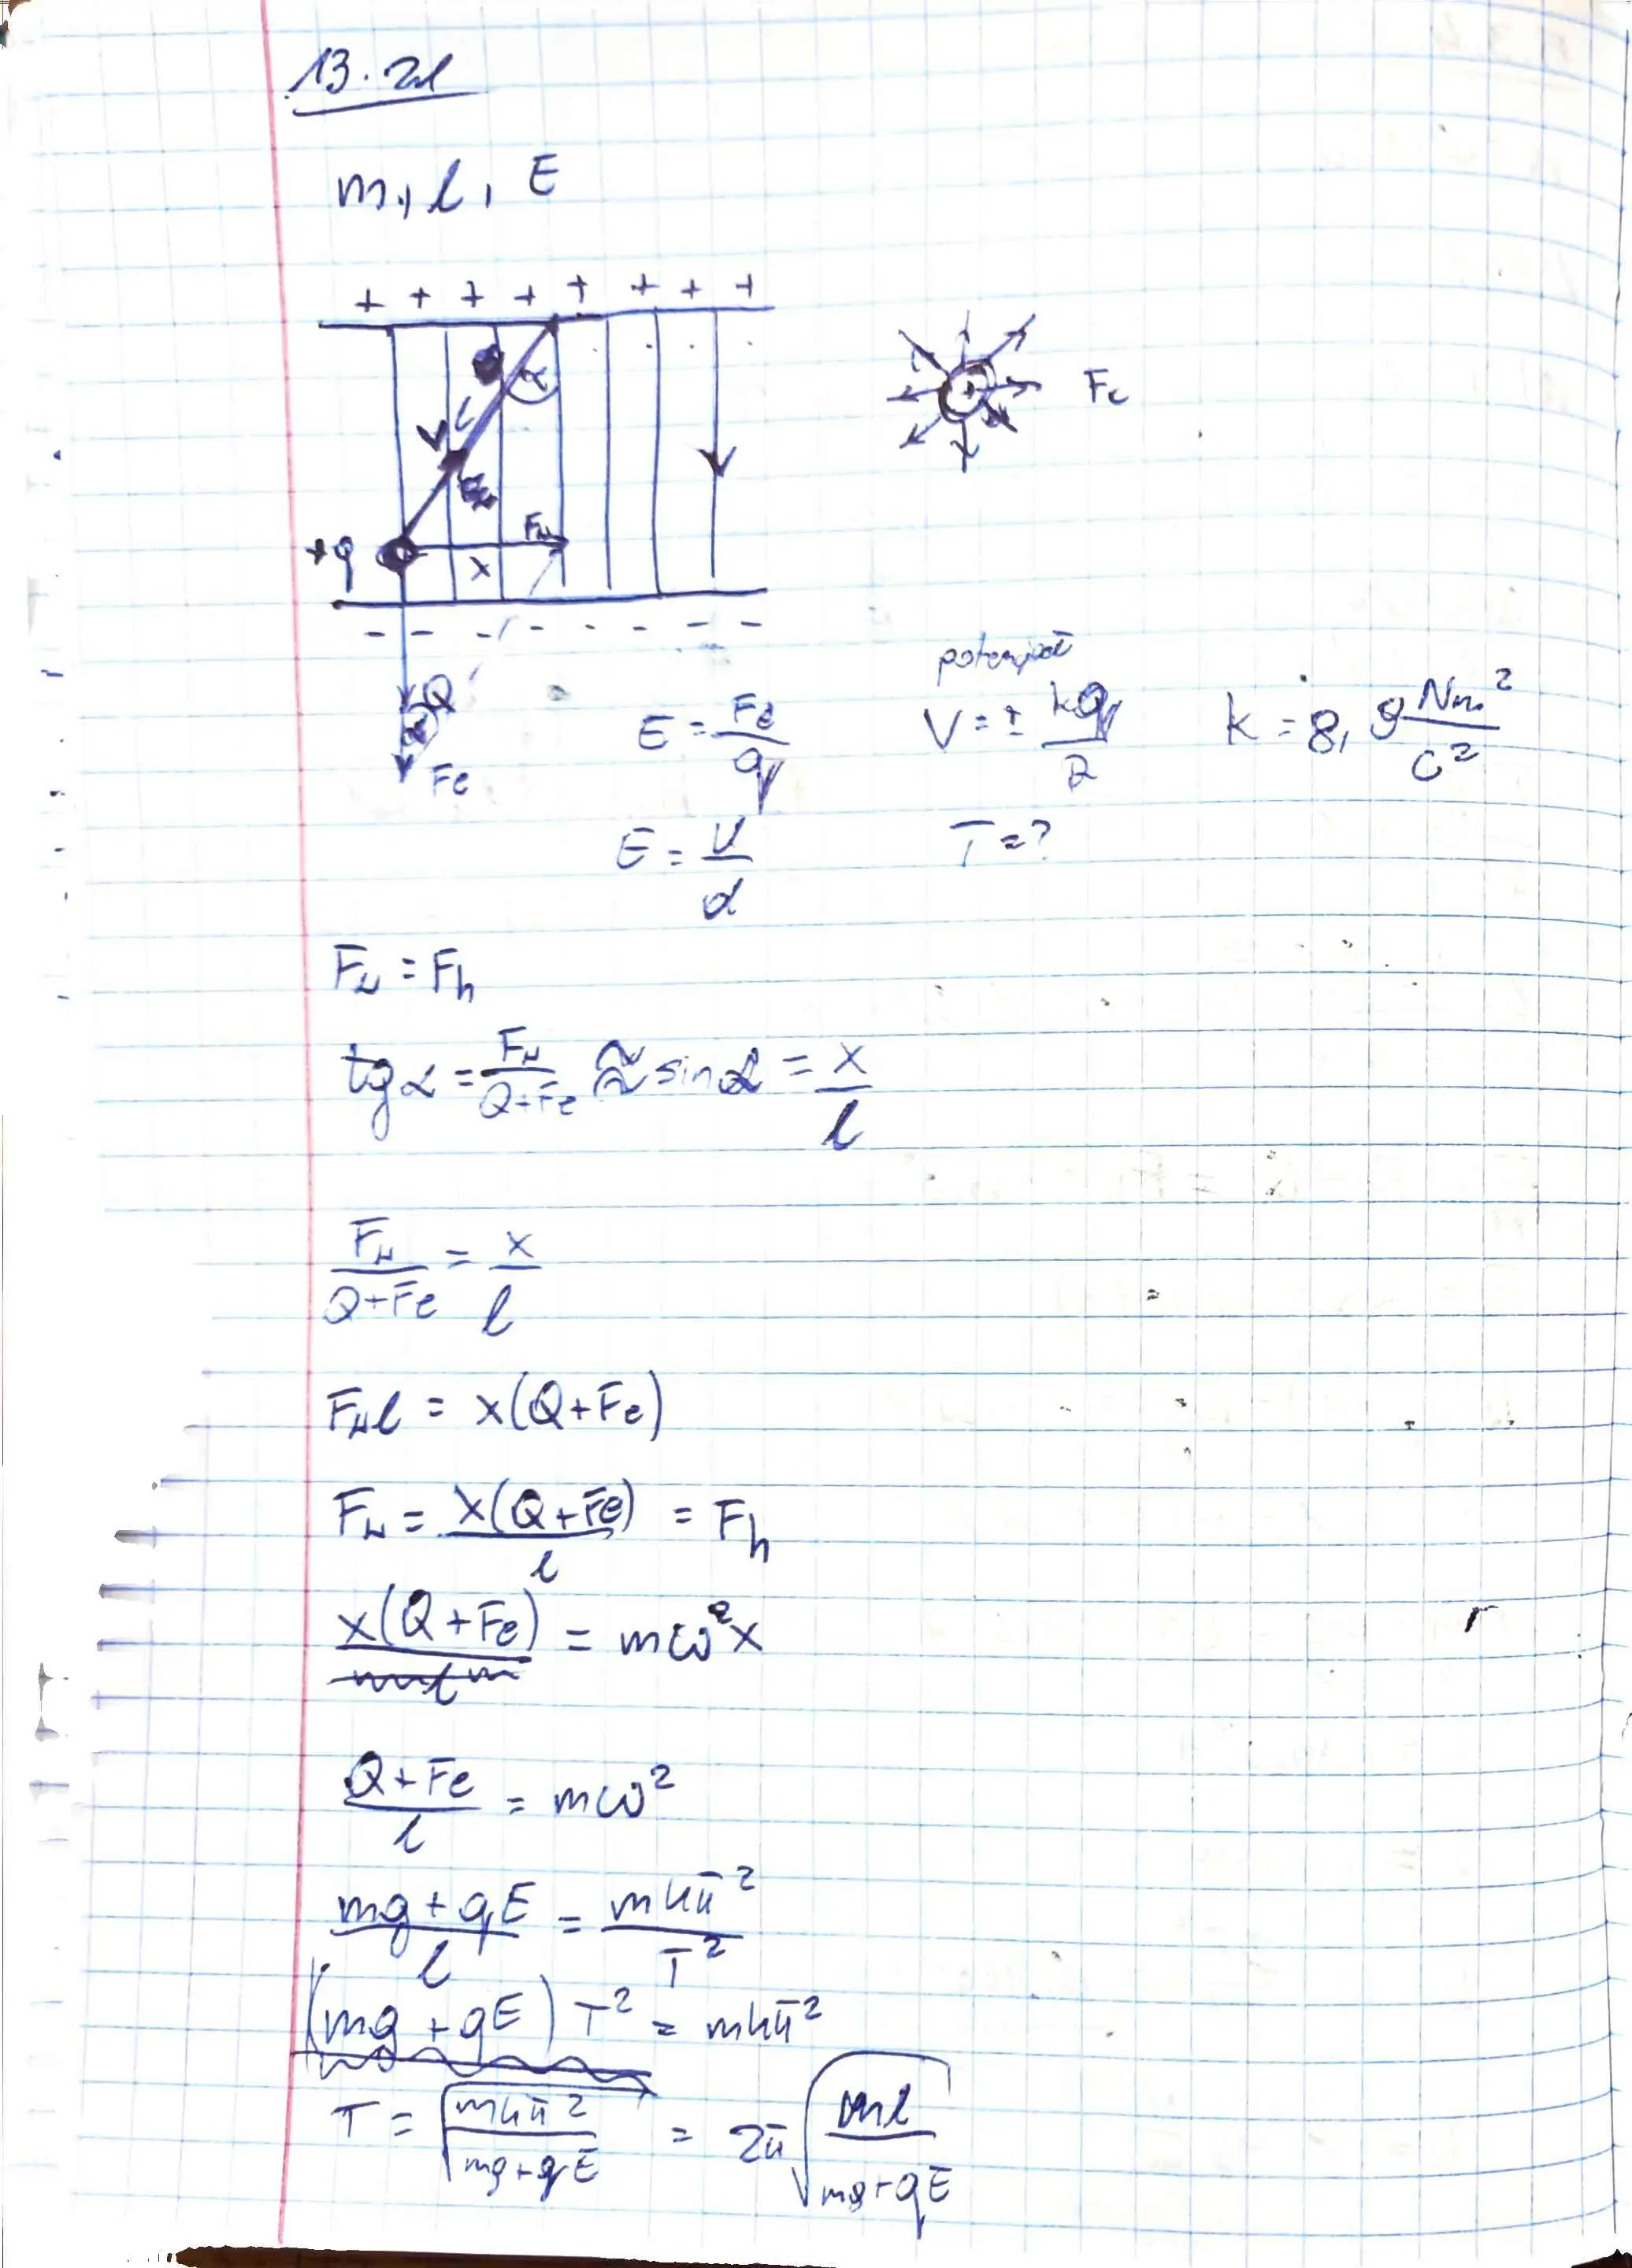 13. zd
m, l, E
+ + + + + + + +
α
l
Fw
+q
x
- - - - - - - -
Q
α
Fe
Fc
potencjał
E = Fe/q
V = ± kq/R
k = 8,9 Nm²/C²
E = U/d
T = ?
Fw = Fh
tg α = Fw/(Q+Fe) ≈ sin α = x/l
Fw/(Q+Fe) = x/l
Fw l = x(Q+Fe)
Fw = x(Q+Fe)/l = Fh
x(Q+Fe)/l = mω²x
(Q+Fe)/l = mω²
(mg+qE)/l = m4π²/T²
(mg+qE)T² = m4π²
T = √(m4π²/(mg+qE)) = 2π√(ml/(mg+qE))